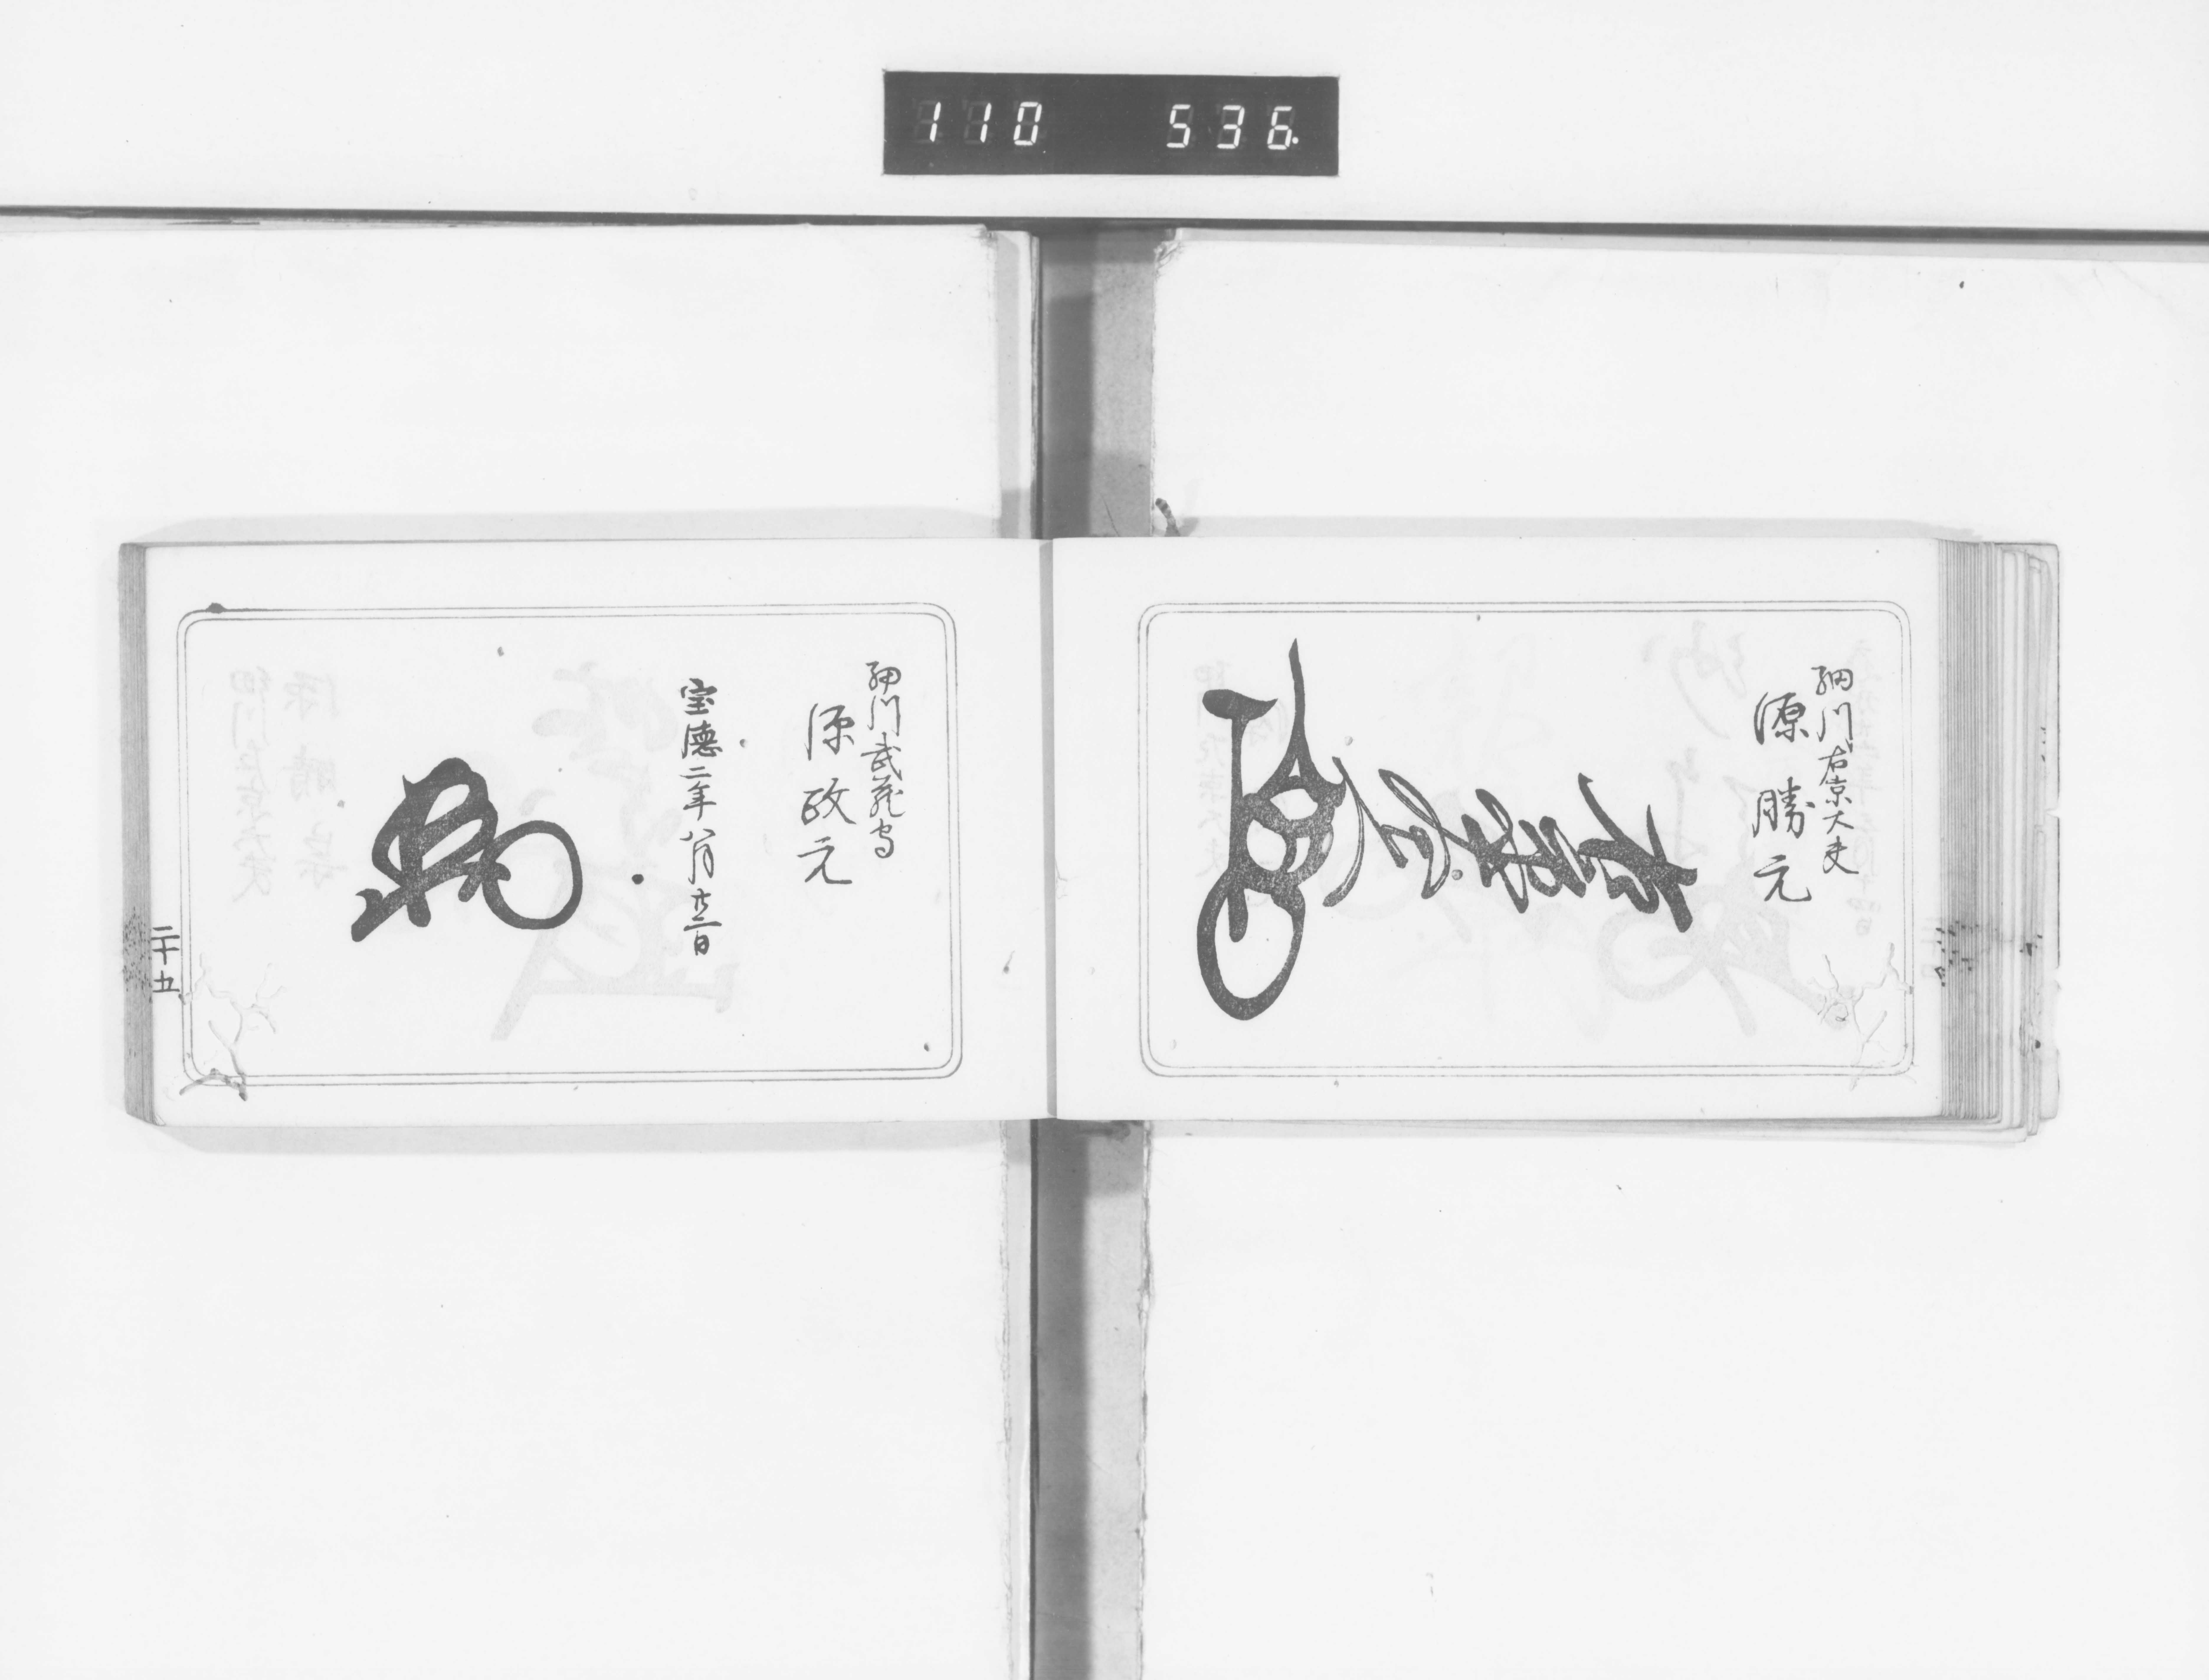 110 536.
細川右京大夫
源勝元
右京大夫
細川武蔵守
源政元
宝徳二年八月廿三日
二十五